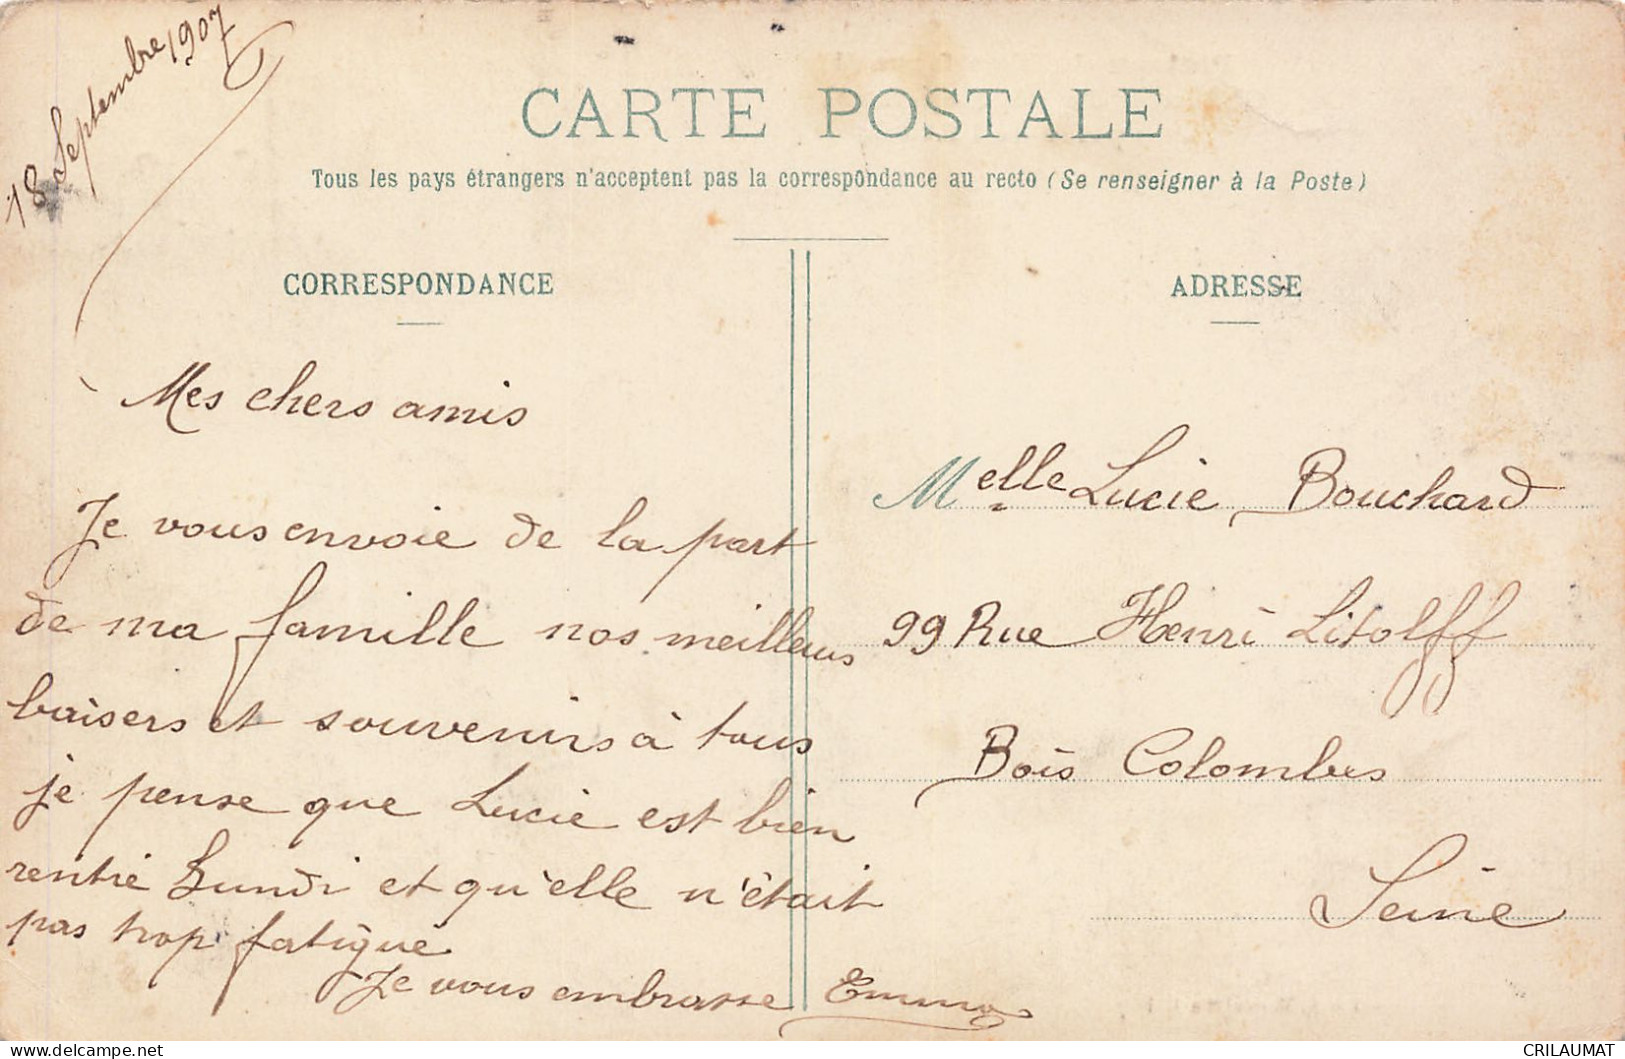 18 Septembre 1907
CARTE POSTALE
Tous les pays étrangers n'acceptent pas la correspondance au recto (Se renseigner à la Poste)
CORRESPONDANCE
Mes chers amis
Je vous envoie de la part
de ma famille nos meilleurs
baisers et souvenirs à tous
je pense que Lucie est bien
rentré Lundi et qu'elle n'était
pas trop fatigué
Je vous embrasse Emma
ADRESSE
Melle Lucie Bouchard
99 Rue Henri Litolff
Bois Colombes
Seine
CRILAUMAT